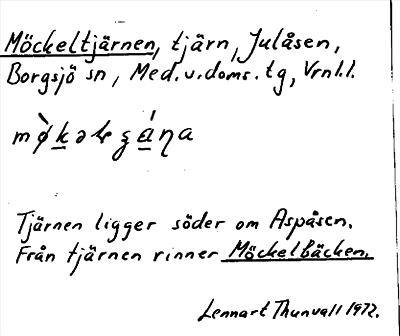 Möckeltjärnen, tjärn, Julåsen,
Borgsjö sn, Med.v.doms.tg, Vrnl.l.
Tjärnen ligger söder om Aspåsen.
Från tjärnen rinner Möckelbäcken.
Lennart Thunvall 1972.